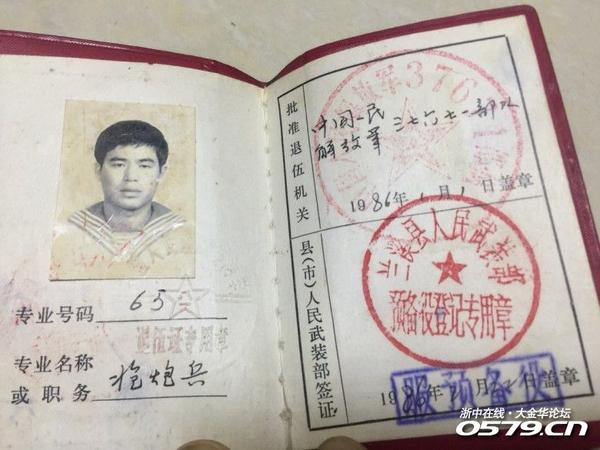 专业号码 65
专业名称
或职务 枪炮兵
批准退伍机关
中国人民
解放军三七六七一部队
1986年1月1日盖章
县(市)人民武装部签证
兰溪县人民武装部
预备役登记专用章
服预备役
1986年1月 日盖章
浙中在线·大金华论坛
0579.cn